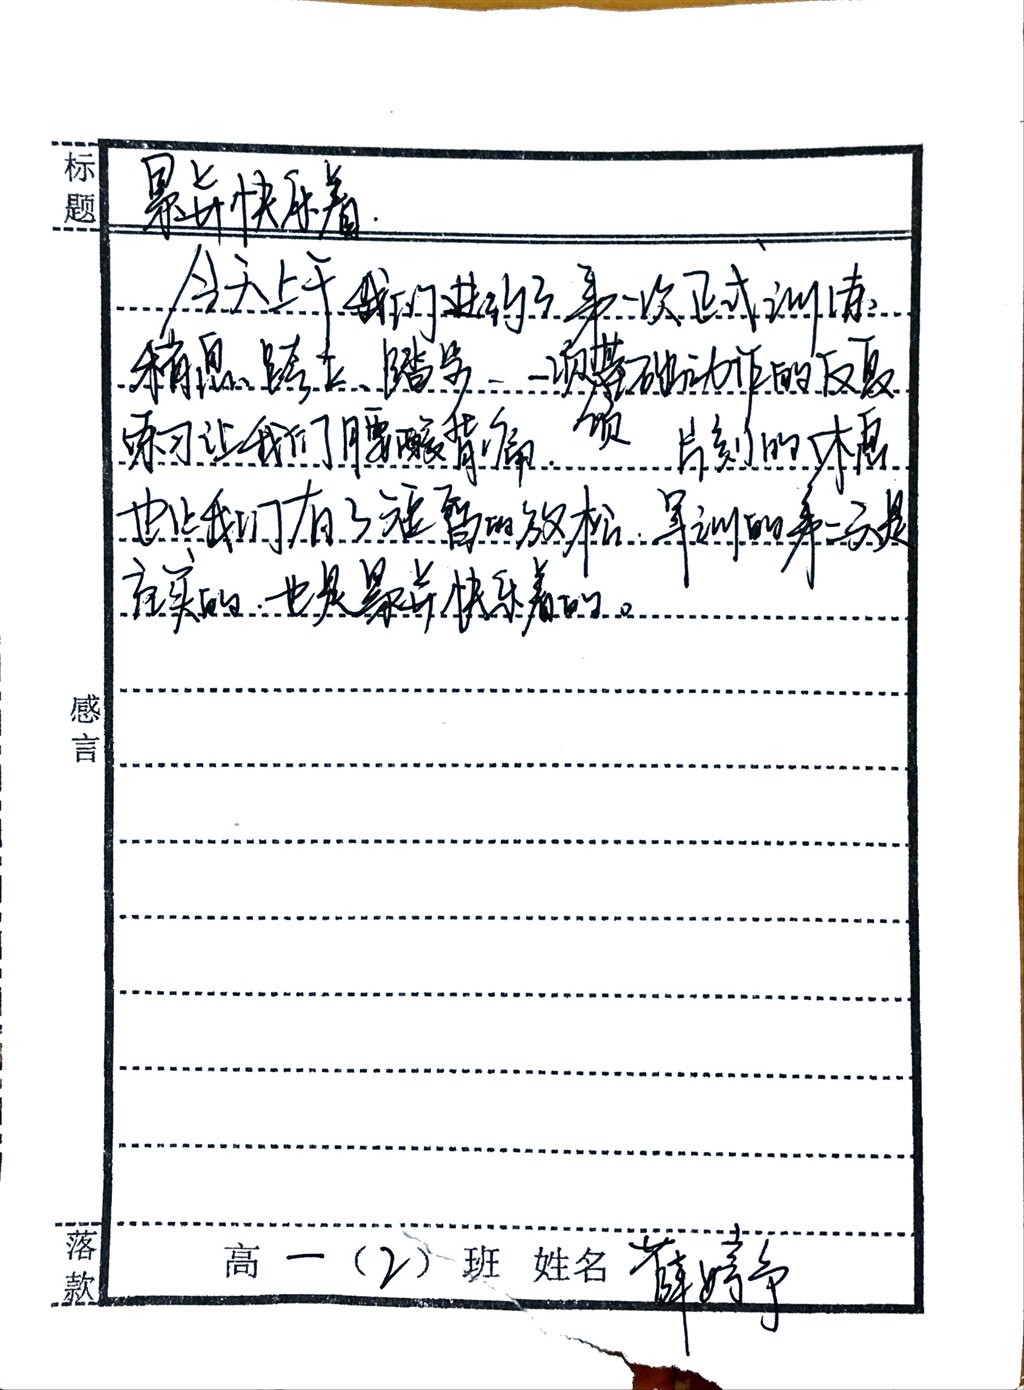 标题
累并快乐着.
今天上午我们进行了第一次正式训练:
稍息、跨立、踏步、一项项基础动作的反复
练习让我们腰酸背痛. 片刻的休息
也让我们有了短暂的放松. 军训的第一天是
充实的.也是累并快乐着的。
感言
落款
高一(2)班 姓名 薛婷